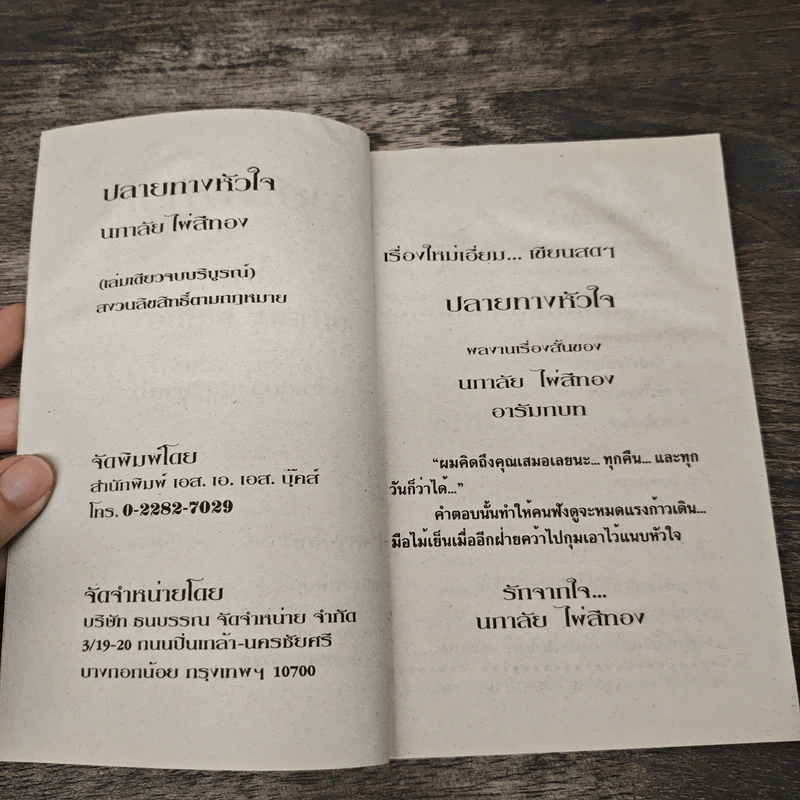 ปลายทางหัวใจ
นภาลัย ไผ่สีทอง
(เล่มเดียวจบบริบูรณ์)
สงวนลิขสิทธิ์ตามกฎหมาย
จัดพิมพ์โดย
สำนักพิมพ์ เอส. เอ. เอส. บุ๊คส์
โทร. 0-2282-7029
จัดจำหน่ายโดย
บริษัท ธนบรรณ จัดจำหน่าย จำกัด
3/19-20 ถนนปิ่นเกล้า-นครชัยศรี
บางกอกน้อย กรุงเทพฯ 10700
เรื่องใหม่เอี่ยม... เขียนสดๆ
ปลายทางหัวใจ
ผลงานเรื่องสั้นของ
นภาลัย ไผ่สีทอง
อารัมภบท
“ผมคิดถึงคุณเสมอเลยนะ... ทุกคืน... และทุก
วันก็ว่าได้...”
คำตอบนั้นทำให้คนฟังดูจะหมดแรงก้าวเดิน...
มือไม้เย็นเมื่ออีกฝ่ายคว้าไปกุมเอาไว้แนบหัวใจ
รักจากใจ...
นภาลัย ไผ่สีทอง